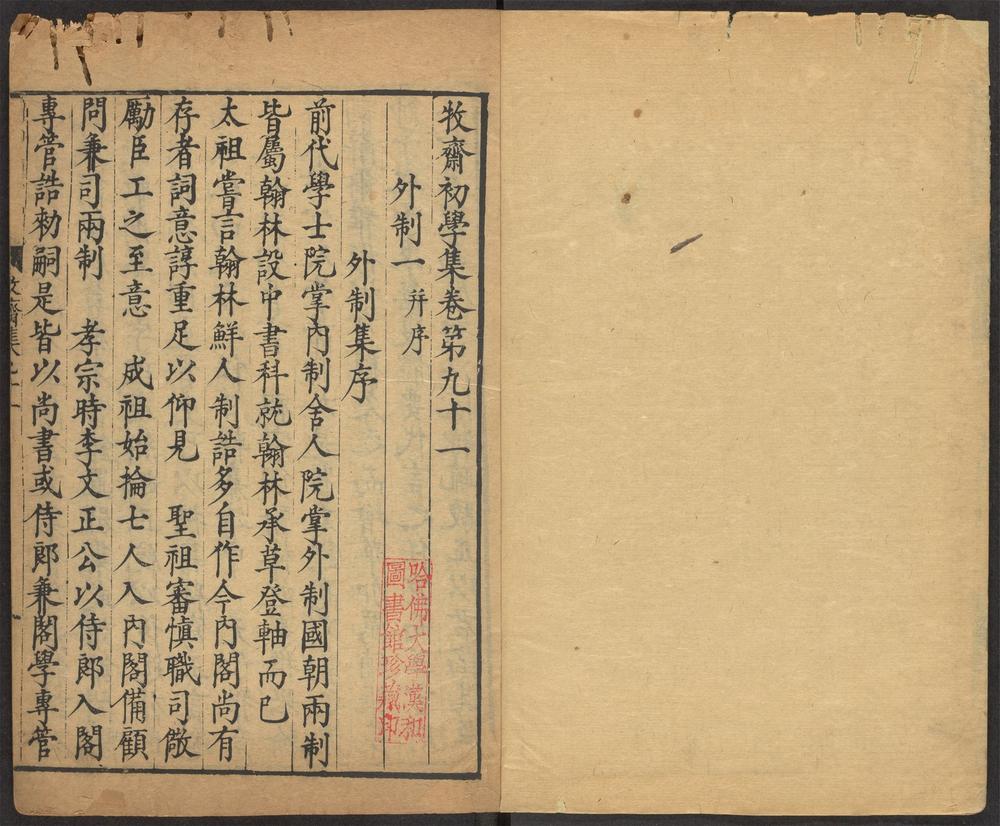 牧齋初學集卷第九十一
外制一 幷序
外制集序
前代學士院掌內制舍人院掌外制國朝兩制
皆屬翰林設中書科就翰林承草登軸而已
太祖嘗言翰林鮮人制誥多自作今內閣尚有
存者詞意諄重足以仰見 聖祖審慎職司儆
勵臣工之至意 成祖始掄七人入內閣備顧
問兼司兩制 孝宗時李文正公以侍郎入閣
專管誥勑嗣是皆以尚書或侍郎兼閣學專管
哈佛大學漢和
圖書館珍藏印